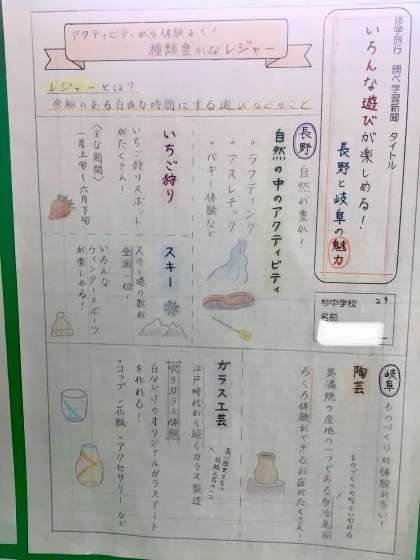 修学旅行 調べ学習新聞 タイトル
いろんな遊びが楽しめる!
長野と岐阜の魅力
杉中学校 29
名前
アクティビティから体験まで!
種類豊かなレジャー
レジャーとは?
余裕のある自由な時間にする遊びなどのこと
長野 自然が豊か!
自然の中のアクティビティ
・ラフティング
・アスレチック
・バギー体験など
いちご狩り
いちご狩りスポット
がたくさん!
〈主な期間〉
一月上旬〜六月下旬
スキー
スキー場の数が
全国一位!
いろんな
ウィンタースポーツ
が楽しめる!
岐阜 ものづくり体験が多い!
陶芸
ものづくりの町といわれる
美濃焼の産地の一つである多治見朝
ろくろ体験ができるお店がたくさん!
ガラス工芸
江戸時代から続くガラス製造
吹きガラス体験
自分だけのオリジナルガラスアート
を作れる!
・コップ・花瓶・アクセサリーなど